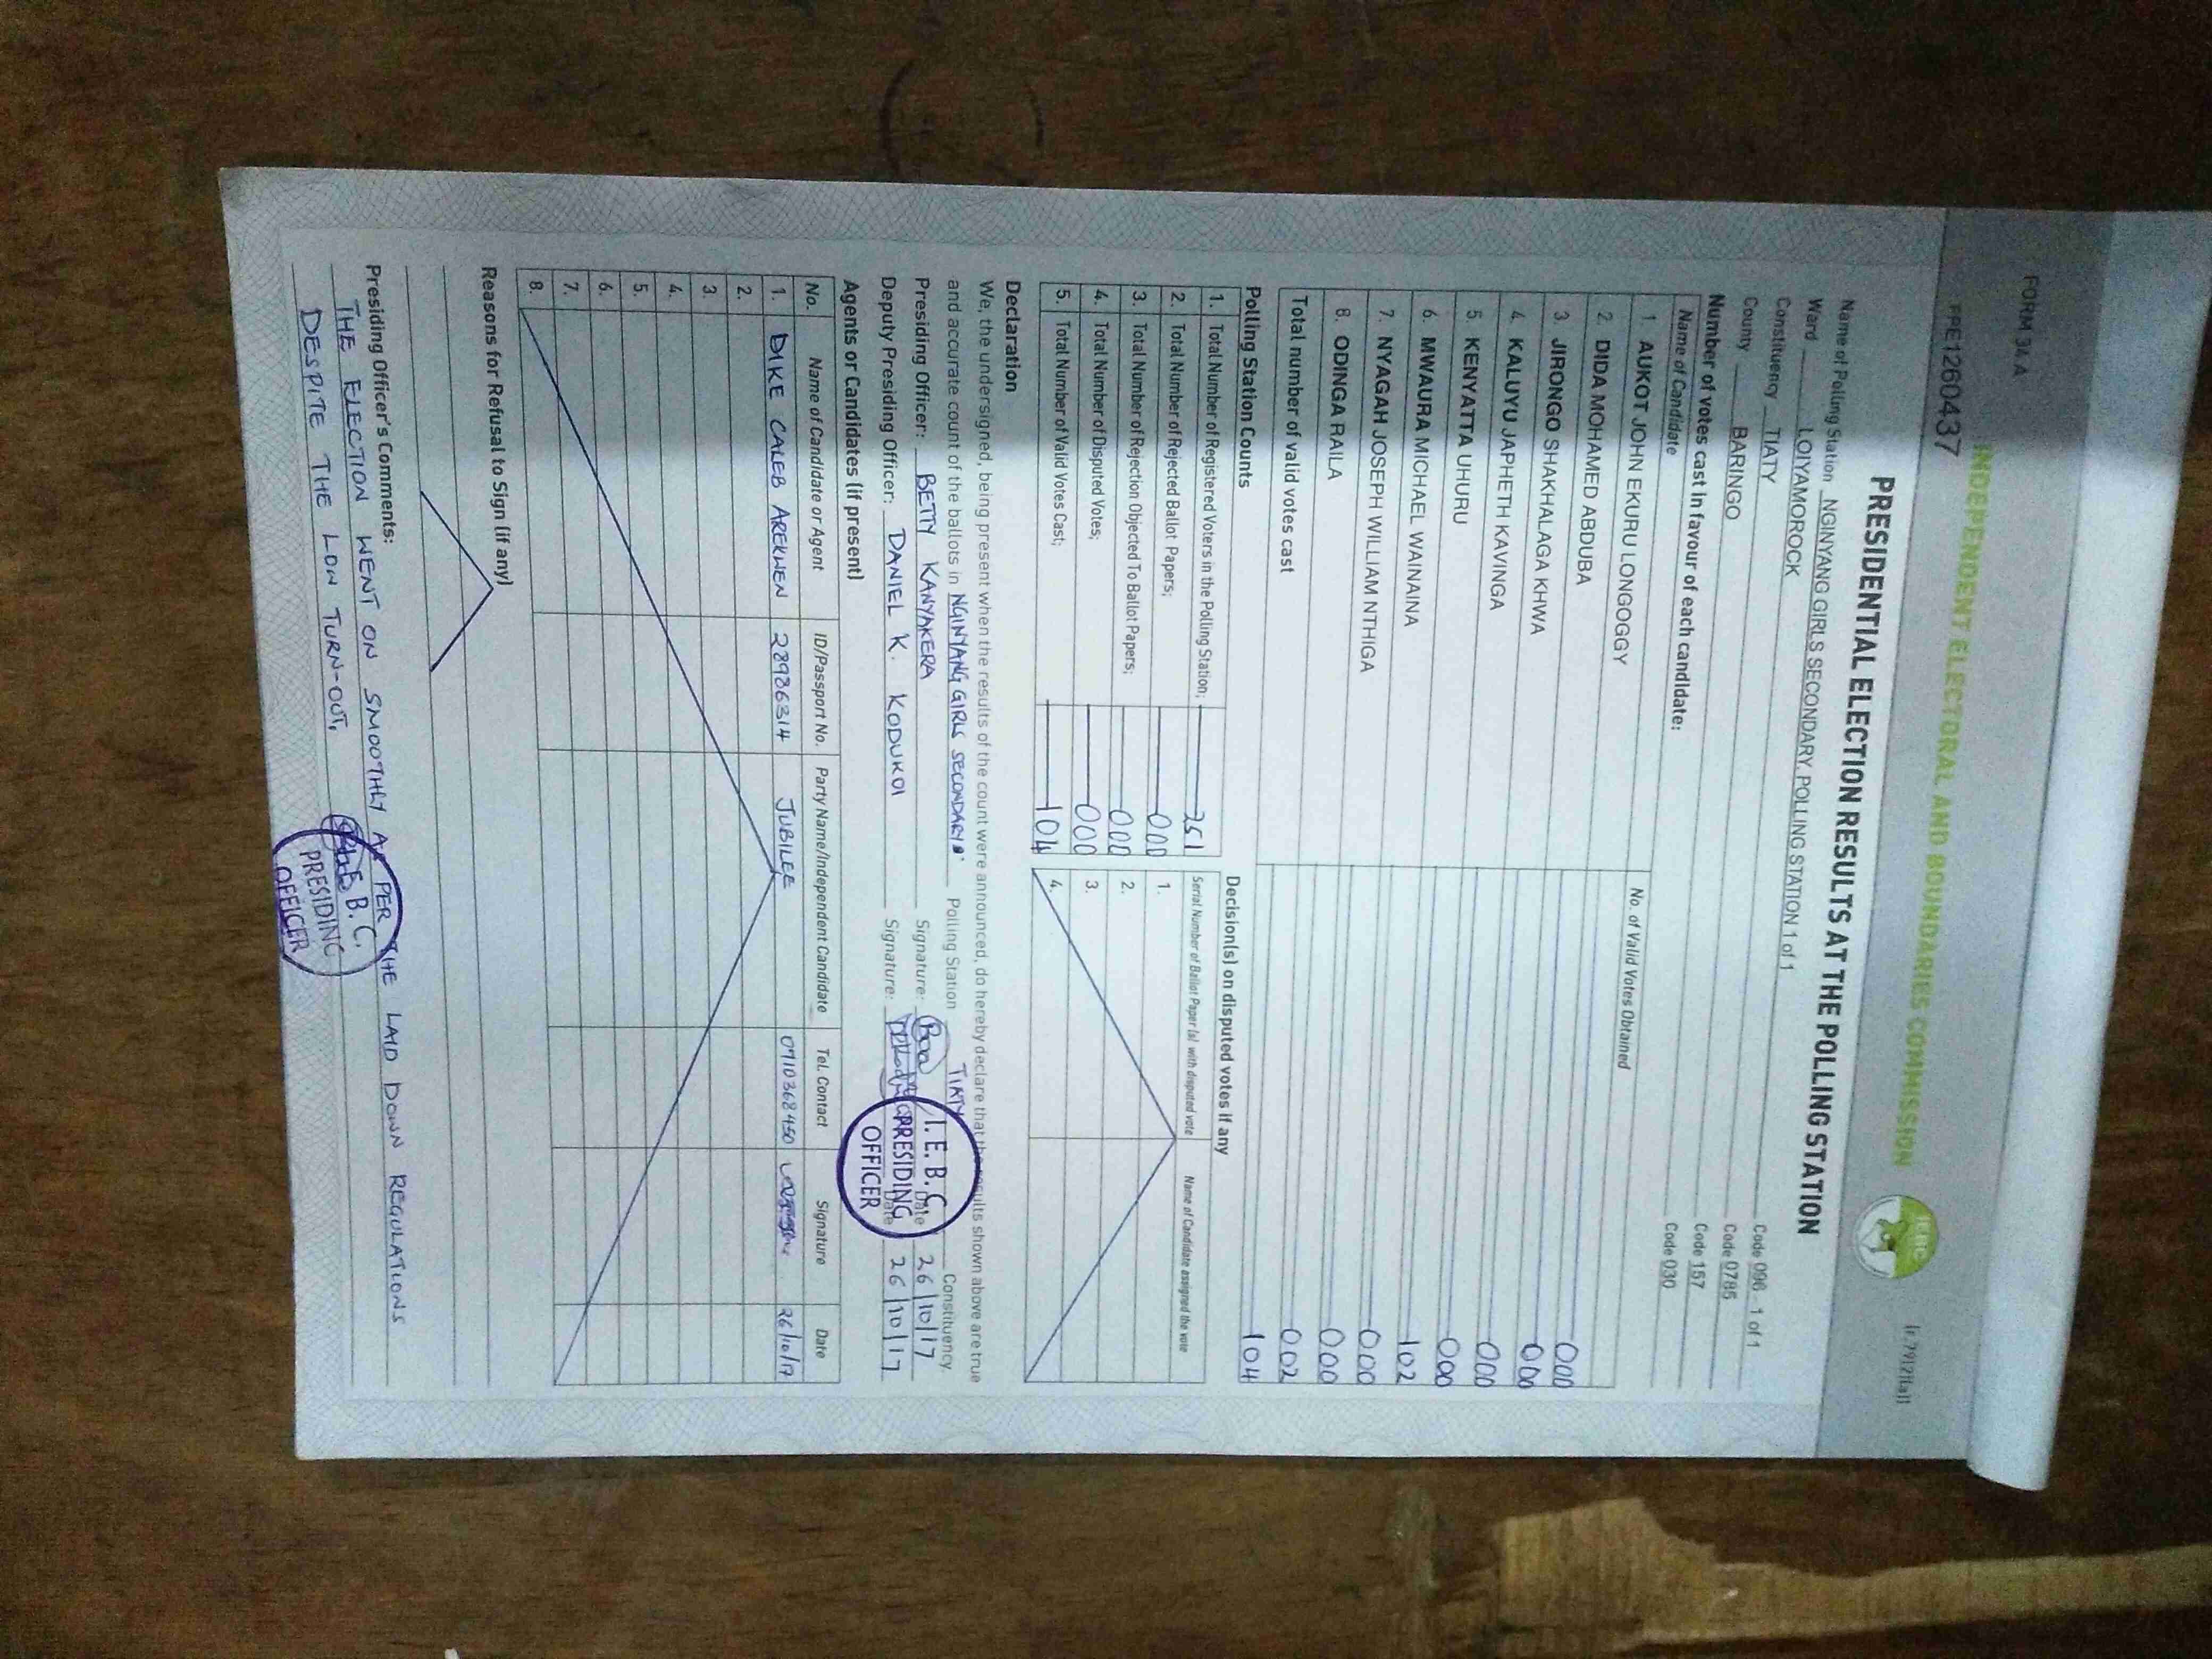 FORM 34 A
(r.79(2)(a))
PRE1260437
INDEPENDENT ELECTORAL AND BOUNDARIES COMMISSION
IEBC
PRESIDENTIAL ELECTION RESULTS AT THE POLLING STATION
Name of Polling Station NGINYANG GIRLS SECONDARY POLLING STATION 1 of 1 Code 096 1 of 1
Ward LOIYAMOROCK Code 0785
Constituency TIATY Code 157
County BARINGO Code 030
Number of votes cast in favour of each candidate:
Name of Candidate No. of Valid Votes Obtained
1. AUKOT JOHN EKURU LONGOGGY 000
2. DIDA MOHAMED ABDUBA 000
3. JIRONGO SHAKHALAGA KHWA 000
4. KALUYU JAPHETH KAVINGA 000
5. KENYATTA UHURU 102
6. MWAURA MICHAEL WAINAINA 000
7. NYAGAH JOSEPH WILLIAM NTHIGA 000
8. ODINGA RAILA 002
Total number of valid votes cast 104
Polling Station Counts
1. Total Number of Registered Voters in the Polling Station; 351
2. Total Number of Rejected Ballot Papers; 000
3. Total Number of Rejection Objected To Ballot Papers; 000
4. Total Number of Disputed Votes; 000
5. Total Number of Valid Votes Cast; 104
Decision(s) on disputed votes if any
Serial Number of Ballot Paper (s) with disputed vote Name of Candidate assigned the vote
1.
2.
3.
4.
Declaration
We, the undersigned, being present when the results of the count were announced, do hereby declare that the results shown above are true
and accurate count of the ballots in NGINYANG GIRLS SECONDARY Polling Station TIATY Constituency.
Presiding Officer: BETTY KANYAKERA Signature: Date 26/10/17
Deputy Presiding Officer: DANIEL K. KODUKOI Signature: Date 26/10/17
I. E. B. C.
PRESIDING
OFFICER
Agents or Candidates (if present)
No. Name of Candidate or Agent ID/Passport No. Party Name/Independent Candidate Tel. Contact Signature Date
1. DIKE CALEB AREKWEN 28986314 JUBILEE 0710368450 26/10/17
2.
3.
4.
5.
6.
7.
8.
Reasons for Refusal to Sign (if any)
Presiding Officer's Comments:
THE ELECTION WENT ON SMOOTHLY AS PER THE LAID DOWN REGULATIONS
DESPITE THE LOW TURN-OUT.
I. E. B. C.
PRESIDING
OFFICER